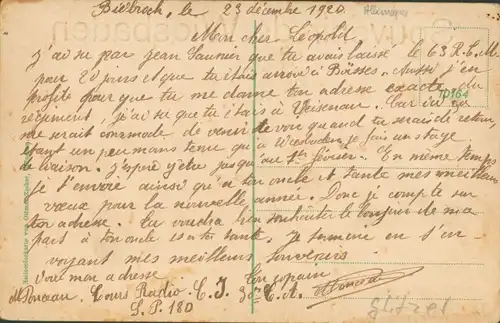 Biebrich, le 23 décembre 1920
Mon cher Léopold
J'ai su par Jean Saunier que tu avais laissé le 63 R.C.M.
pour 20 jours et que tu étais arrivé à Aussi j'en
profite pour que tu me donne ton adresse exacte du
régiment, j'ai su que tu étais à Weisenau. Car ici ça
me serait commode de venir te voir quand tu serais de retour
étant un peu moins tenu qu'à Wiesbaden je fais un stage
de liaison. J'espère y être jusqu'au 1er février. En même temps
je t'envoie ainsi qu'à ton oncle et tante mes meilleurs
vœux pour la nouvelle année. Donc je compte sur
ton adresse. Tu voudra bien souhaiter le bonjour de ma
part à ton oncle et à ta tante. Je termine en t'en-
voyant mes meilleurs souvenirs
Voici mon adresse Ton copain
Cours Radio C.I. 30e C.A.
S.P. 180
70164